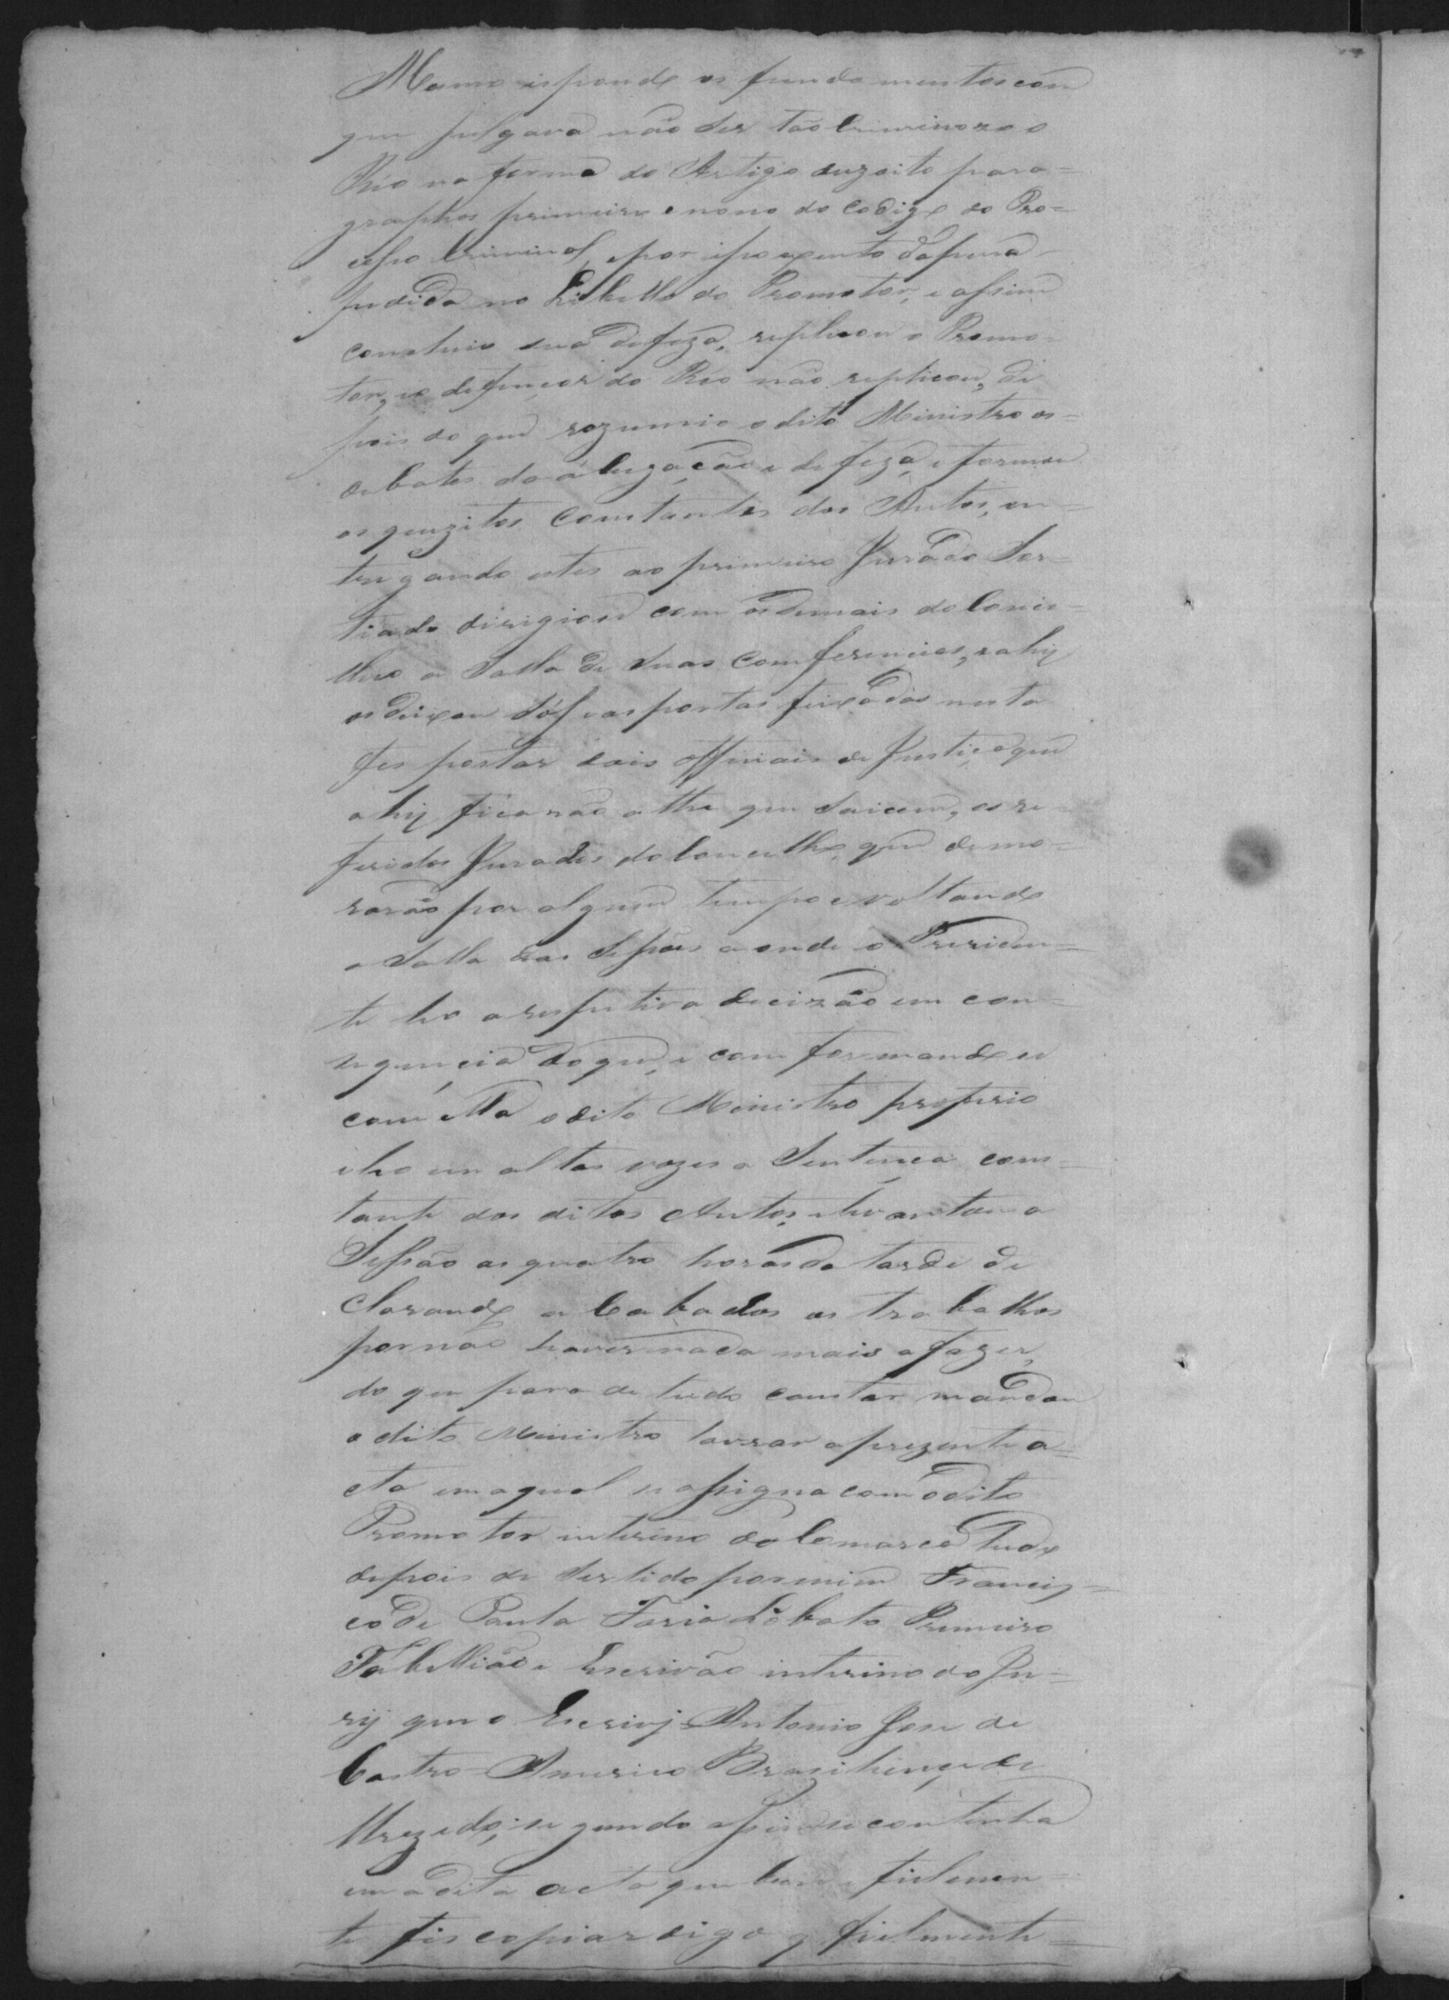 Mesmo expondo os fundamentos com
que julgava não ser tão criminozo o
Reo na forma do Artigo dezoito para=
graphos primeiro e nono do codigo do Pro=
cesso Criminal, e por ipso exento da pena
pedida no Libello do Promotor, e assim
concluio sua defeza, replicou o Promo-
tor, e o defençor do Reo não replicou, de
pois do que rezumio o dito Ministro os=
debates da alegação e defeza, e formou
os quezitos constantes dos Autos, en=
tregando estes ao primeiro Jurado Sor=
tiado dirigiose com os demais do Conce=
lho a Salla de suas comferencias, e ahy
os deixou sós, e as portas feixadas nesta
fes postar dois officiais de Justiça que
ahy ficarão athe que saicem, os re
feridos Jurados do Concelho, que demo=
rarão por algum tempo e voltando
a Salla das Sessões aonde o Prezidem=
te leo a respetiva decizão em con=
sequencia do que, e comformandose
com ella o dito Ministro proferio
e leo em altas vozes a Sentença cons=
tante dos ditos Autos, e levantou a
Sessão as quatro horas da tarde de
clarando acabados os trabalhos
por não haver nada mais a fazer,
do que para de tudo constar mandou
o dito Ministro lavrar a prezente a=
cta em a qual se assigna com o dito
Promotor interino da Comarca tudo
depois de ser lido por mim Francis=
co de Paula Faria Lobato Primeiro
Tabellião e Escrivão interino do Ju=
ry que o Escrivj Antonio Jose de
Castro - Americo Brasilienço de
segundo assim se continha
em a dita acta que bem e fielmen=
te fis copiar digo q fielmente=